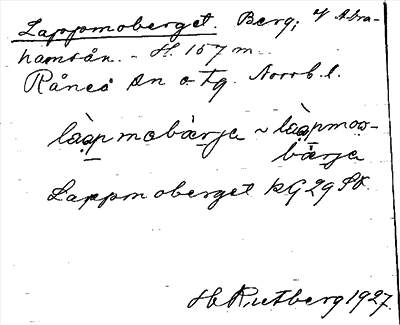 Lappmoberget. Berg; y Abra-
hamsån. - H. 157 m.
Råneå sn o. tg. Norrb. l.
làpmobärja ~ làpmow-
bärja
Lappmoberget kG 29 SV.
H. Rutberg 1927.